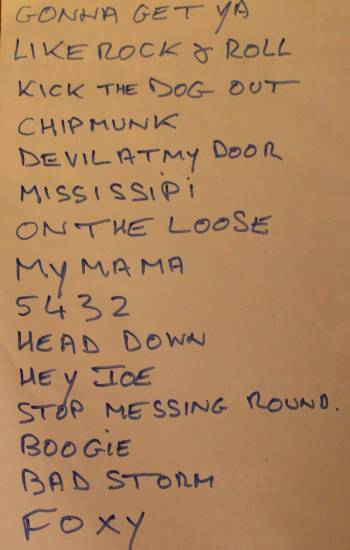 GONNA GET YA
LIKE ROCK & ROLL
KICK THE DOG OUT
CHIPMUNK
DEVIL AT MY DOOR
MISSISSIPI
ON THE LOOSE
MY MAMA
5432
HEAD DOWN
HEY JOE
STOP MESSING ROUND.
BOOGIE
BAD STORM
FOXY